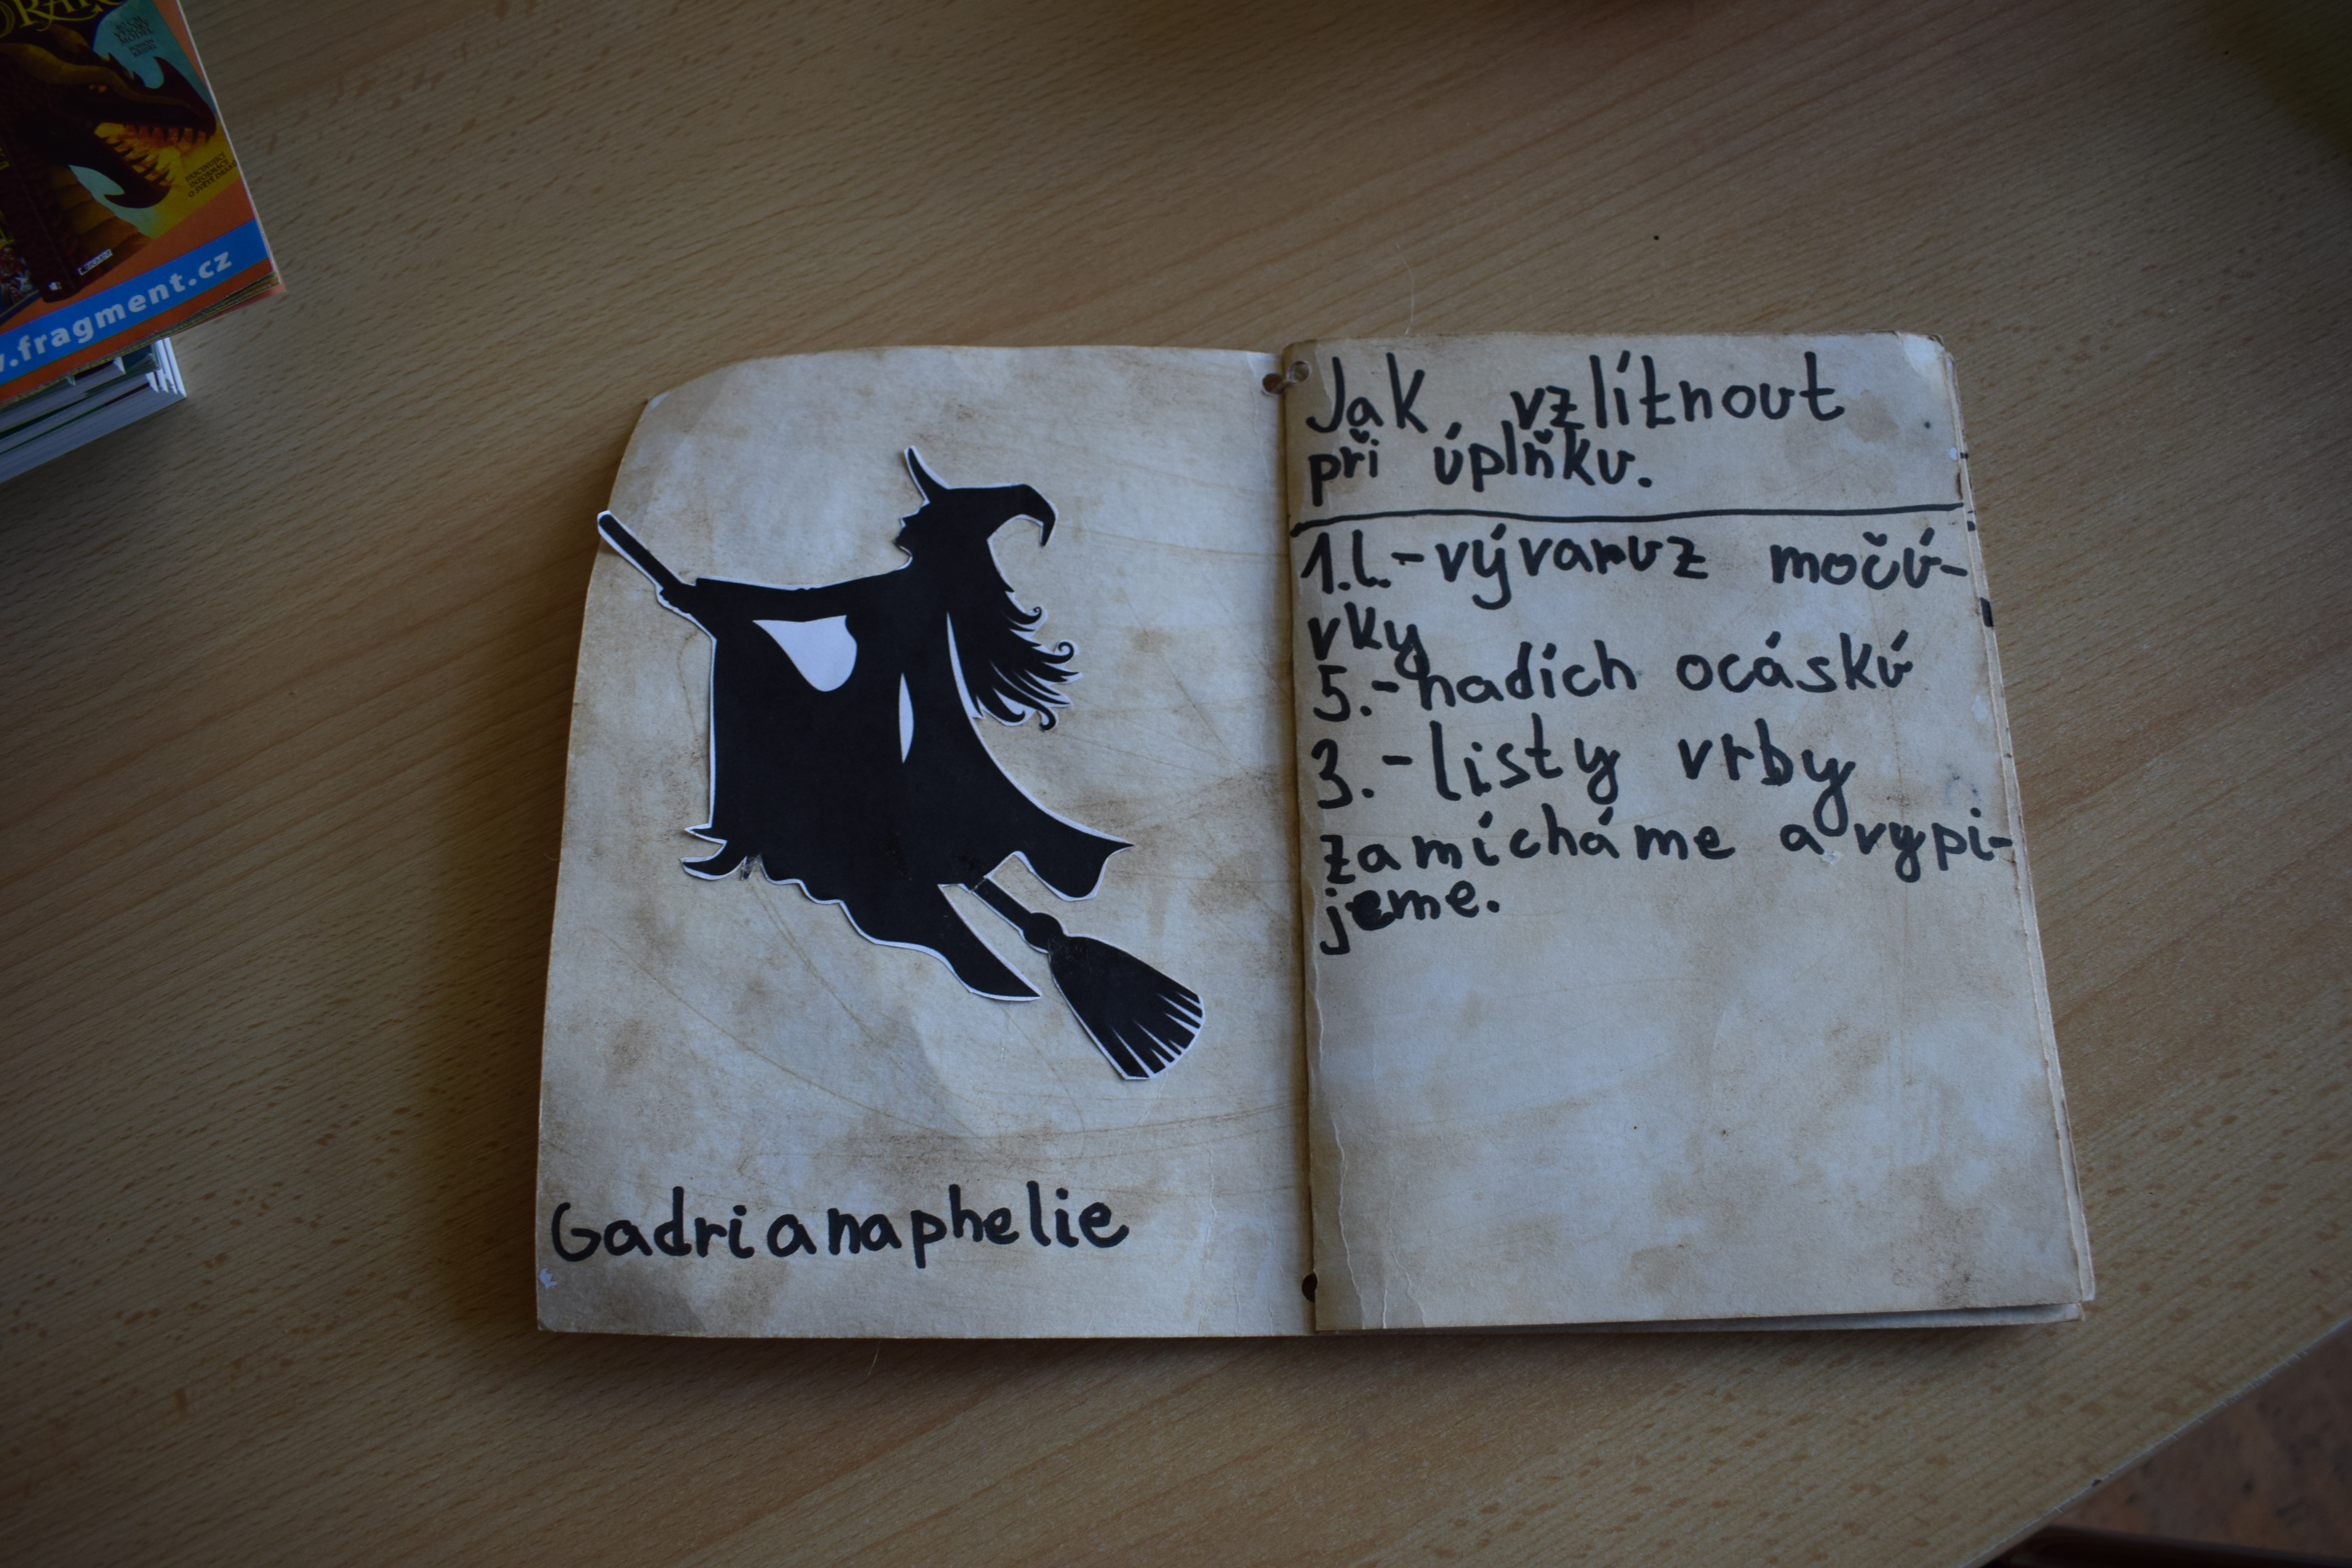 www.fragment.cz
Gadrianaphelie
Jak vzlítnout
při úplňku.
1.l.-vývaruz močů-
vky
5.-hadích ocásků
3.-listy vrby
zamícháme a vypi-
jeme.